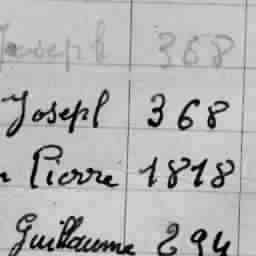 Joseph 368
Joseph 368
Pierre 1818
Guillaume 294